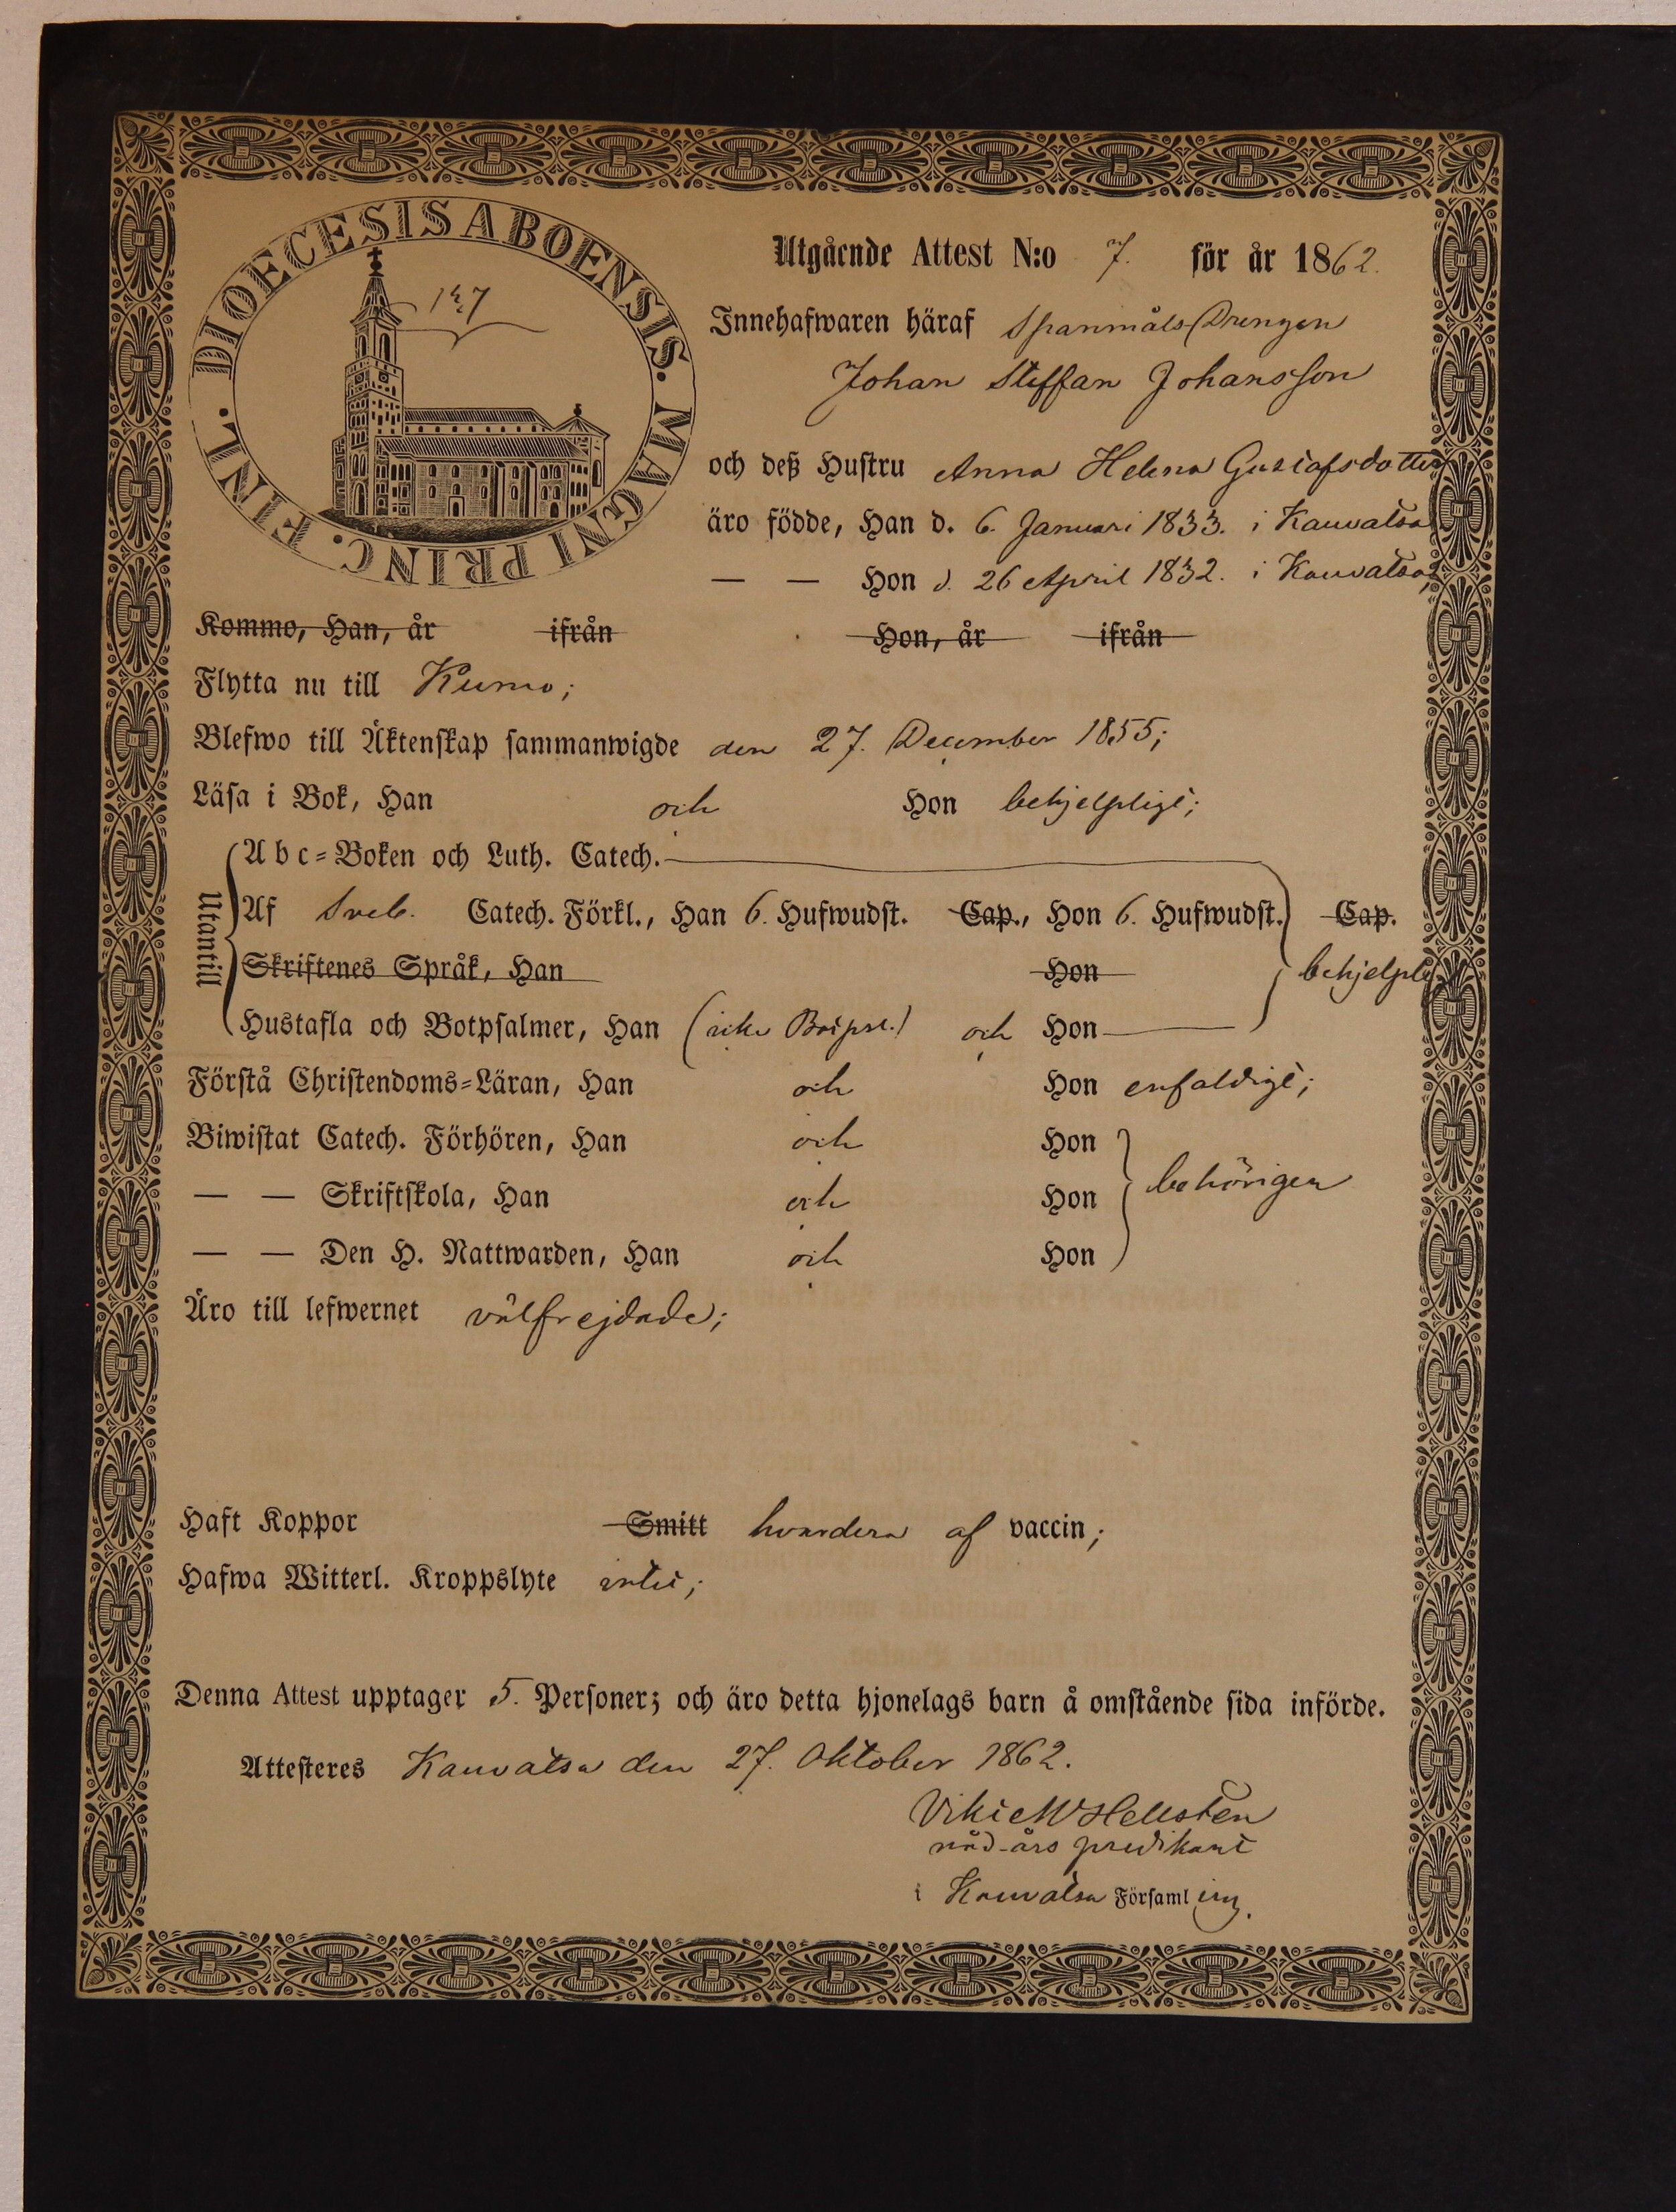 DIOECESIS ABOENSIS. MAGNI PRINC. FINL.
Utgående Attest N:o 7. för år 1862.
Innehafwaren häraf Spanmåls Drengen
Johan Steffan Johansson
och deß Hustru Anna Helena Gustafsdotter
äro födde, Han d. 6. Januari 1833. i Kauvatsa
— — Hon d. 26 April 1832. i Kauvatsa;
Kommo, Han, år ifrån Hon, år ifrån
Flytta nu till Kumo;
Blefwo till Äktenskap sammanwigde den 27. December 1855;
Läsa i Bok, Han och Hon behjelpligt;
Utantill
Abc-Boken och Luth. Catech.
Af Sveb. Catech. Förkl., Han 6. Hufwudst. Cap., Hon 6. Hufwudst. Cap.
Skriftenes Språk, Han Hon behjelpligt
Hustafla och Botpsalmer, Han (icke Botpsl.) och Hon
Förstå Christendoms-Läran, Han och Hon enfaldigt;
Biwistat Catech. Förhören, Han och Hon
— — Skriftskola, Han och Hon behörigen
— — Den H. Nattwarden, Han och Hon
Äro till lefwernet välfrejdade;
Haft Koppor Smitt hvardera af vaccin;
Hafwa Witterl. Kroppslyte intet;
Denna Attest upptager 5. Personer; och äro detta hjonelags barn å omstående sida införde.
Attesteres Kauvatsa den 27. Oktober 1862.
Hellsten
nåd-års predikant
i Kauvatsa Församling.